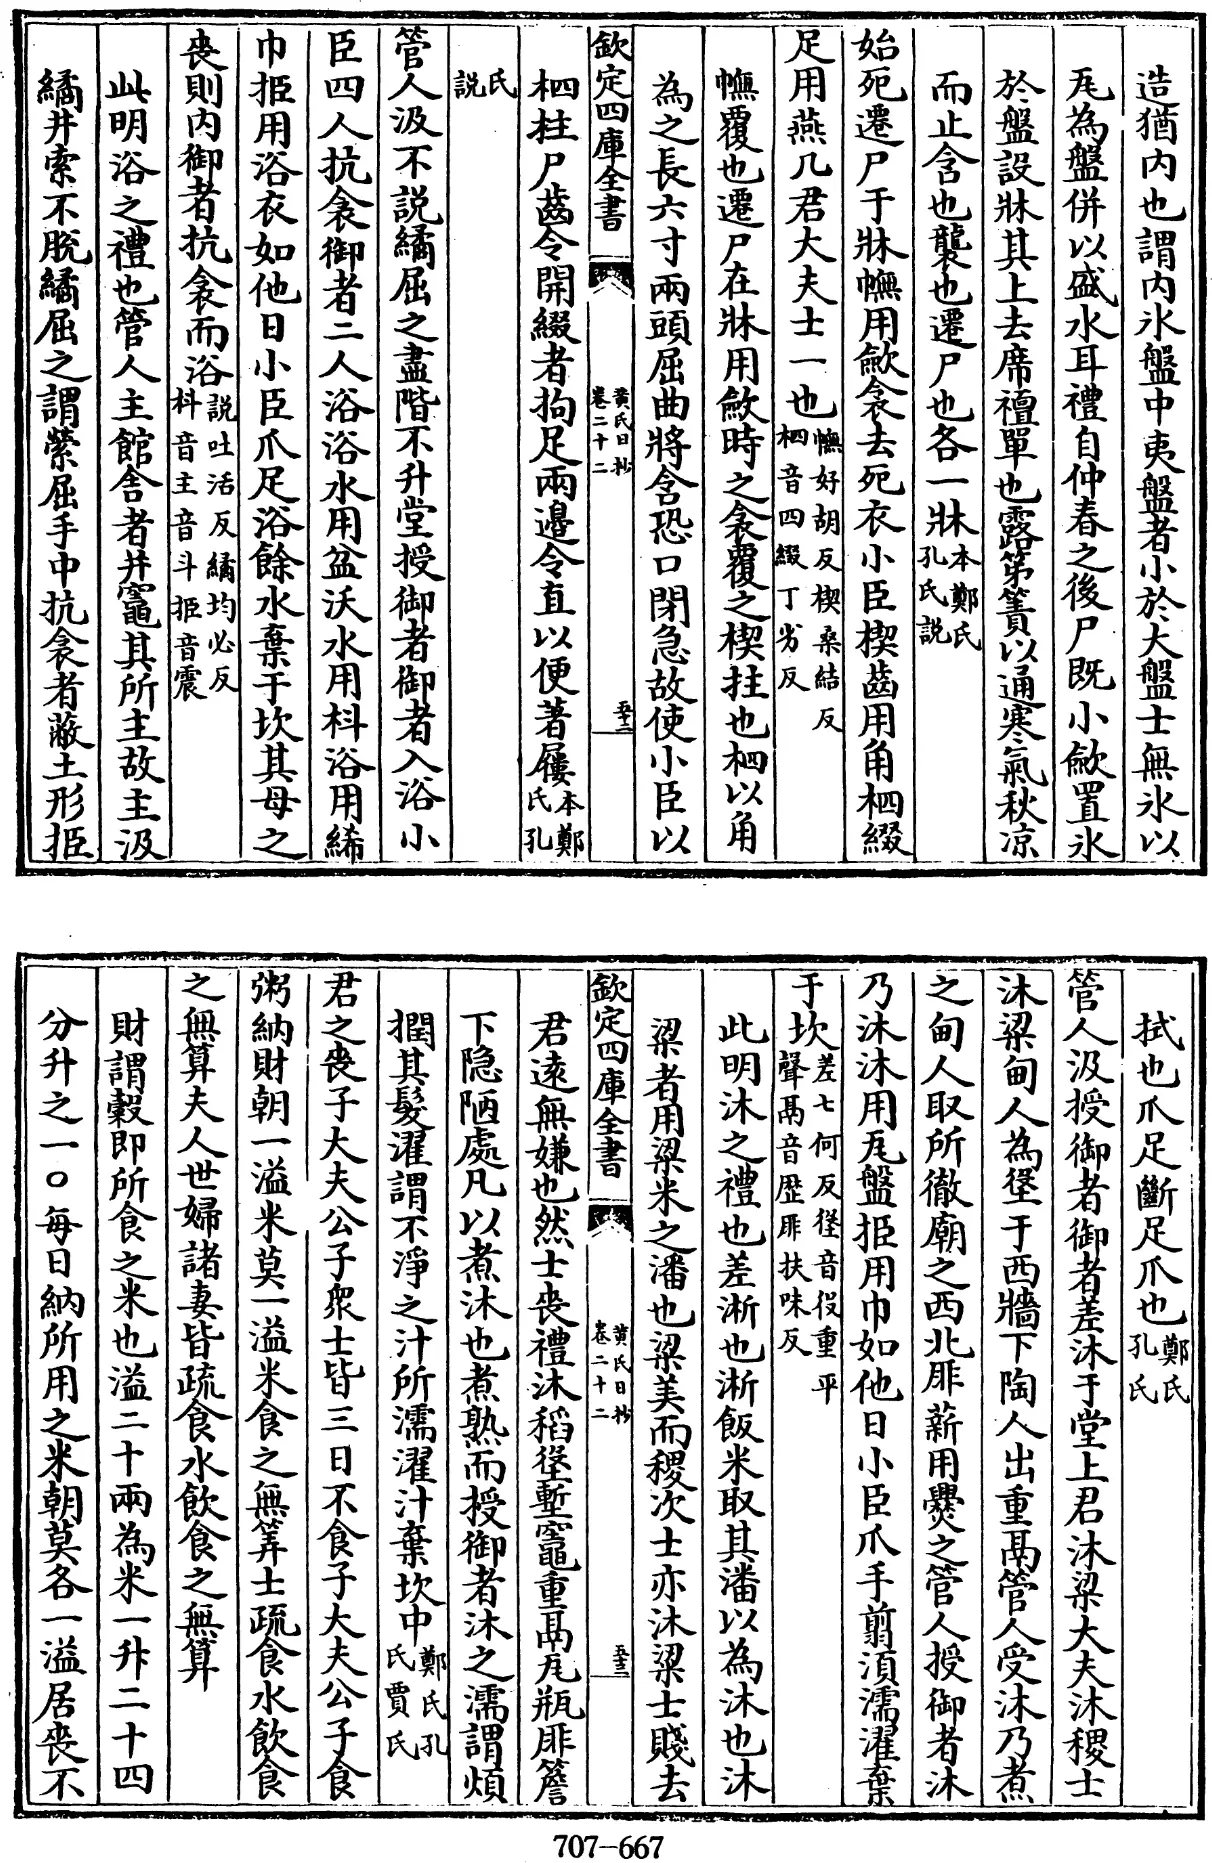 造猶内也謂内氷盤中夷盤者小於大盤士無氷以
瓦為盤併以盛水耳禮自仲春之後尸既小斂置氷
於盤設牀其上去席襢單也露笫簀以通寒氣秋凉
而止含也襲也遷尸也各一牀本鄭氏孔氏説
始死遷尸于牀幠用斂衾去死衣小臣楔齒用角柶綴
足用燕几君大夫士一也幠好胡反楔桑結反柶音四綴丁劣反
幠覆也遷尸在牀用斂時之衾覆之楔拄也柶以角
為之長六寸兩頭屈曲將含恐口閉急故使小臣以
欽定四庫全書
黄氏日抄
卷二十二
五十二
柶柱尸齒令開綴者拘足兩邉令直以便著屨本鄭氏孔
氏説
管人汲不説繘屈之盡階不升堂授御者御者入浴小
臣四人抗衾御者二人浴浴水用盆沃水用枓浴用絺
巾挋用浴衣如他日小臣爪足浴餘水棄于坎其母之
喪則内御者抗衾而浴説吐活反繘均必反枓音主音斗挋音震
此明浴之禮也管人主館舎者井竈其所主故主汲
繘井索不脱繘屈之謂縈屈手中抗衾者蔽土形挋
拭也爪足斷足爪也鄭氏孔氏
管人汲授御者御者差沐于堂上君沐粱大夫沐稷士
沐粱甸人為垼于西牆下陶人出重鬲管人受沐乃煮
之甸人取所徹廟之西北厞薪用爨之管人授御者沐
乃沐沐用瓦盤挋用巾如他日小臣爪手翦須濡濯棄
于坎差七何反垼音役重平聲鬲音歴厞扶味反
此明沐之禮也差淅也淅飯米取其潘以為沐也沐
粱者用粱米之潘也粱美而稷次士亦沐粱士賤去
欽定四庫全書
黄氏日抄
卷二十二
五十三
君逺無嫌也然士喪禮沐稻垼塹竈重鬲瓦瓶厞簷
下隐陋處凡以煮沐也煮熟而授御者沐之濡謂煩
撋其髪濯謂不淨之汁所濡濯汁棄坎中鄭氏孔氏賈氏
君之喪子大夫公子衆士皆三日不食子大夫公子食
粥納財朝一溢米莫一溢米食之無筭士疏食水飲食
之無算夫人世婦諸妻皆疏食水飲食之無算
財謂榖即所食之米也溢二十兩為米一升二十四
分升之一○每日納所用之米朝莫各一溢居喪不
707-667